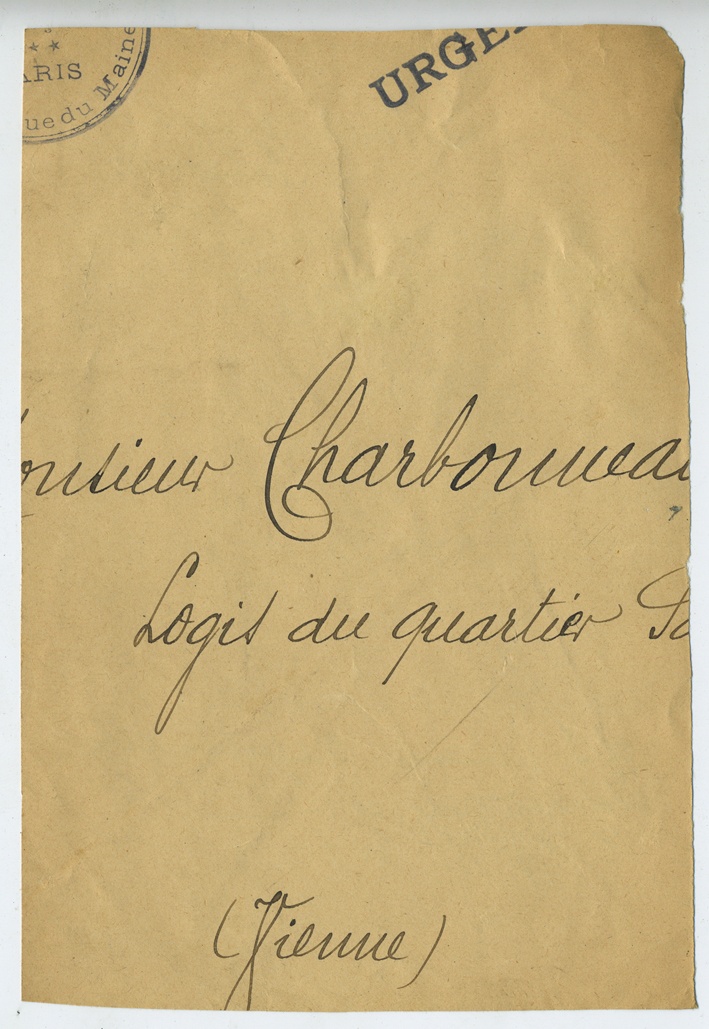 ARIS
ue du Maine
URGE
onsieur Charbonnea
Logis du quartier Sa
(Vienne)